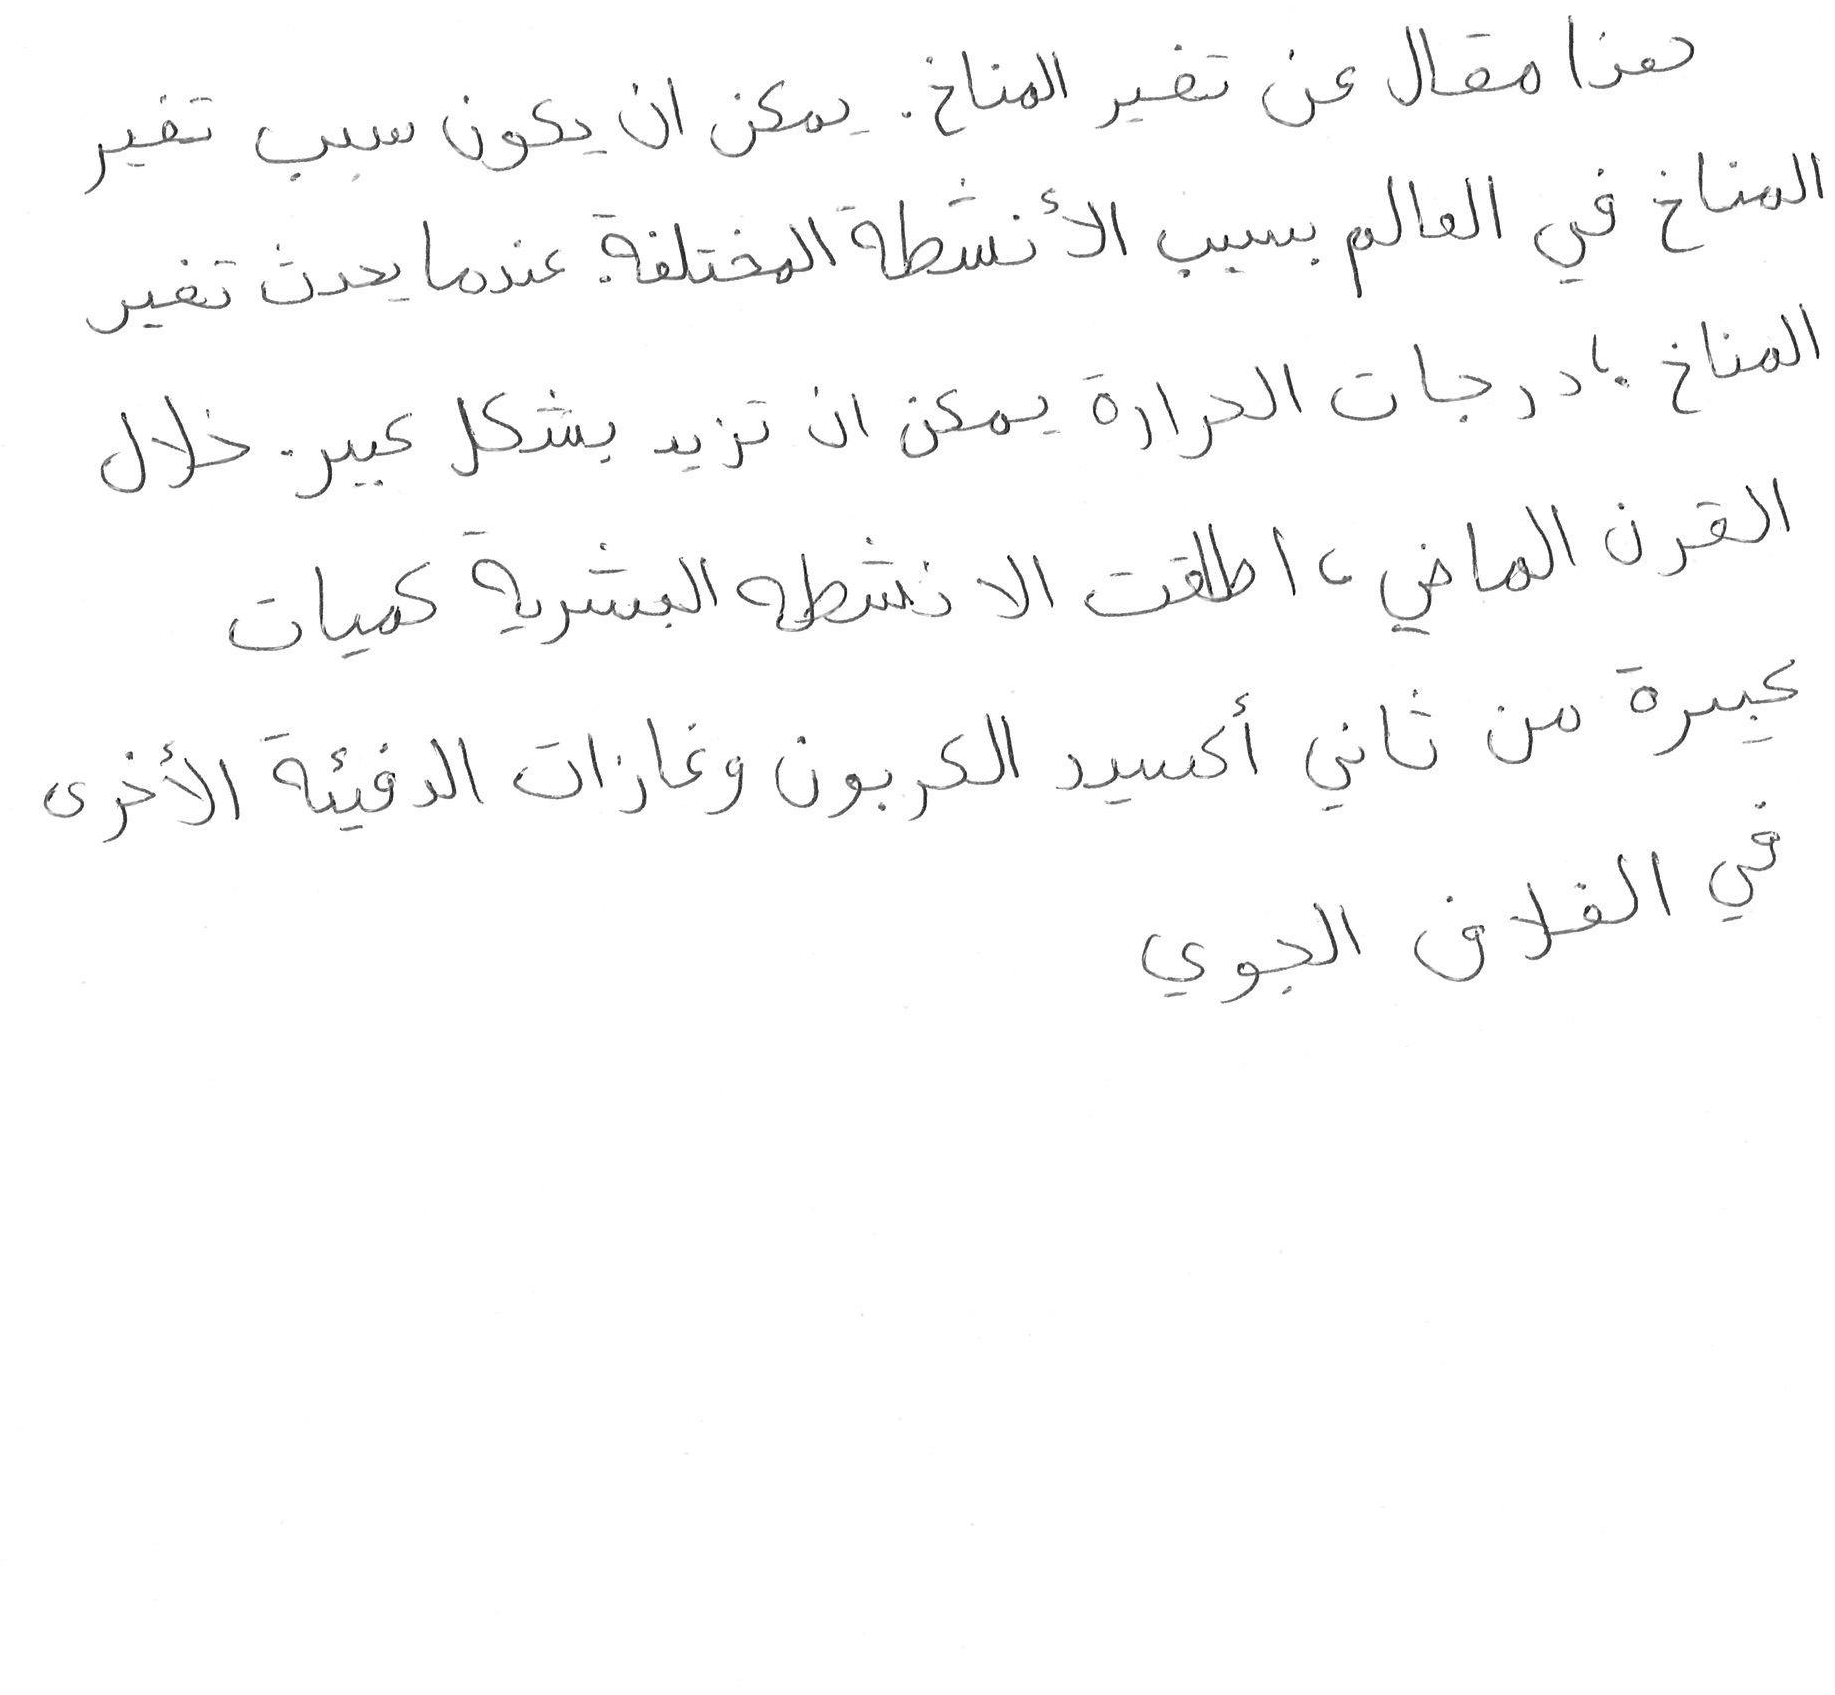 هذا مقال عن تغير المناخ. يمكن ان يكون سبب تغير
المناخ في العالم بسبب الأنشطة المختلفة. عندما يحدث تغير
المناخ ؛ درجات الحرارة يمكن ان تزيد بشكل كبير. خلال
القرن الماضي، اطلقت الانشطه البشرية كميات
كبيرة من ثاني أكسيد الكربون وغازات الدفيئة الأخرى
في الغلاف الجوي